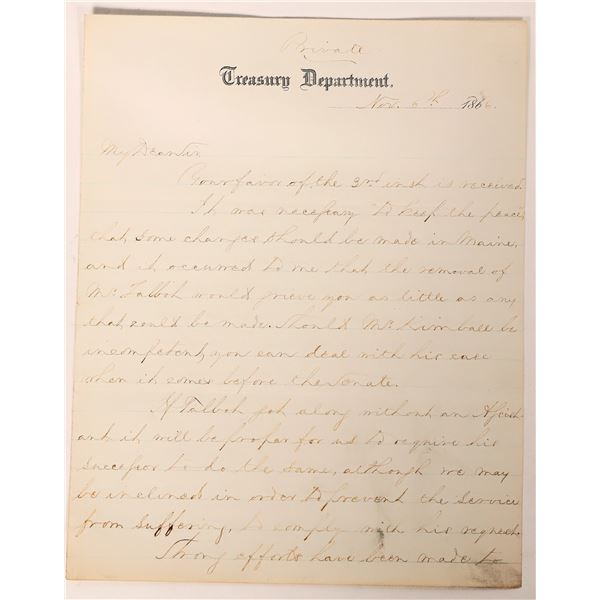 Private
Treasury Department.
Nov. 6th 1866.
My Dear Sir
Your favor of the 3rd inst is received
It was necessary to keep the peace
that some changes should be made in Maine,
and it occurred to me that the removal of
Mr Talbot would grieve you as little as any
that could be made. Should Mr Kimball be
incompetent, you can deal with his case
when it comes before the Senate.
If Talbot got along without an Assist-
ant it will be proper for us to require his
successor to do the same, although we may
be inclined in order to prevent the service
from suffering, to comply with his request.
Strong efforts have been made to